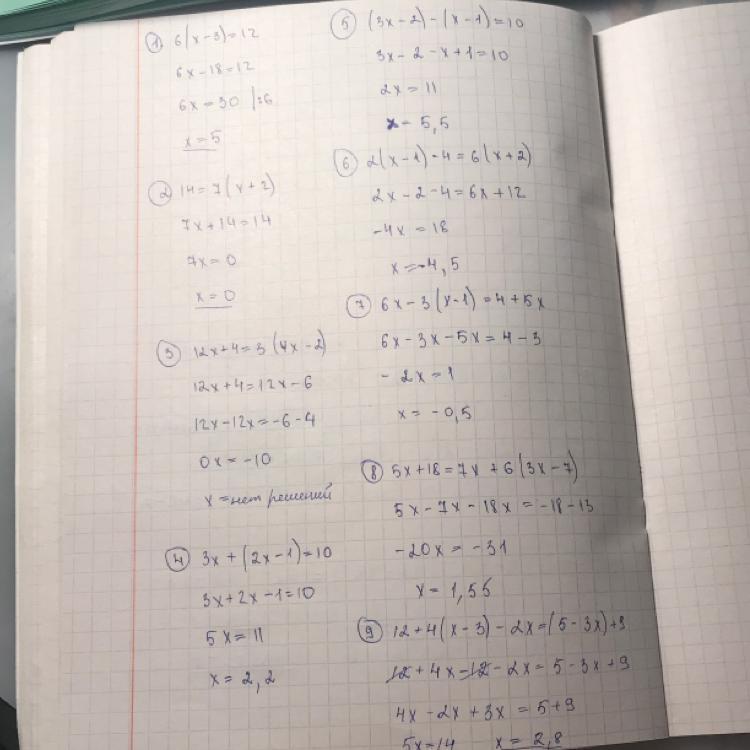 1 6(x-3)=12
6x-18=12
6x=30 |:6
x=5
2 14=7(x+2)
7x+14=14
7x=0
x=0
3 12x+4=3(4x-2)
12x+4=12x-6
12x-12x=-6-4
0x=-10
x=нет решений
4 3x+(2x-1)=10
3x+2x-1=10
5x=11
x=2,2
5 (3x-2)-(x-1)=10
3x-2-x+1=10
2x=11
x=5,5
6 2(x-1)-4=6(x+2)
2x-2-4=6x+12
-4x=18
x=-4,5
7 6x-3(x-1)=4+5x
6x-3x-5x=4-3
-2x=1
x=-0,5
8 5x+18=7x+6(3x-7)
5x-7x-18x=-18-13
-20x=-31
x=1,55
9 12+4(x-3)-2x=(5-3x)+9
12+4x-12-2x=5-3x+9
4x-2x+3x=5+9
5x=14 x=2,8